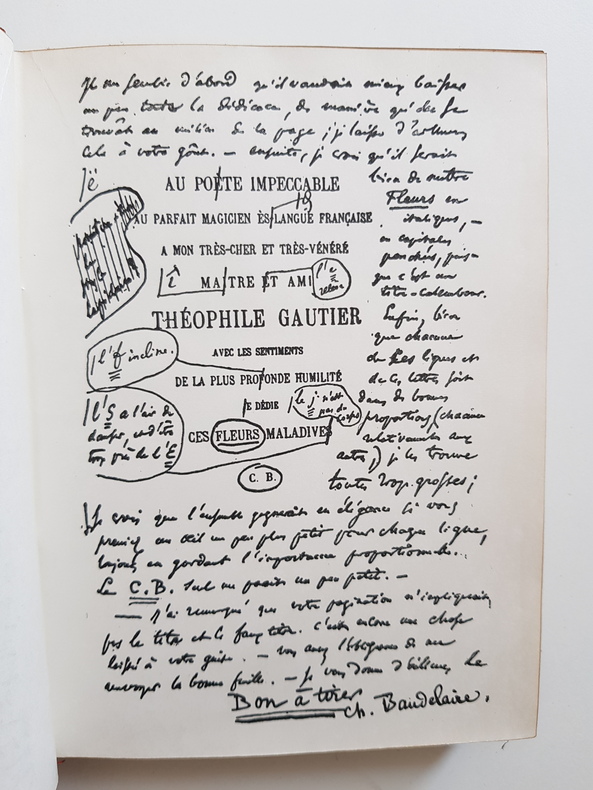 Il me semble d'abord qu'il vaudrait mieux baisser
un peu toute la dédicace, de manière qu'elle se
trouvât au milieu de la page ; je laisse d'ailleurs
cela à votre goût. — ensuite, je crois qu'il serait
bien de mettre
Fleurs en
italiques, —
en capitales
penchées, puis-
que c'est un
titre-calembour.
Enfin, bien
que chacune
de ces lignes et
de ces lettres soit
dans de bonnes
proportions (chacune
relativement aux
autres,) je les trouve
toutes trop grosses ;
/ë
AU POETE IMPECCABLE
AU PARFAIT MAGICIEN ÈS LANGUE FRANÇAISE
A MON TRÈS-CHER ET TRÈS-VÉNÉRÉ
/î MAITRE ET AMI
l'e
THÉOPHILE GAUTIER
/l'f incline.
AVEC LES SENTIMENTS
DE LA PLUS PROFONDE HUMILITÉ
JE DÉDIE
le j n'est
pas du
corps
/l'S a l'air de
danser, c'est-à-dire
trop près de l'E
CES FLEURS MALADIVES
C. B.
Je crois que l'ensemble gagnerait en élégance si vous
preniez un œil un peu plus petit pour chaque ligne,
toujours en gardant l'importance proportionnelle.
Le C.B. seul me paraît un peu petit. —
— J'ai remarqué que votre pagination n'impliquait
pas le titre et le faux titre. C'est encore une chose
laissée à votre guise. — vous avez l'obligeance de me
renvoyer la bonne feuille. — Je vous donne d'ailleurs le
Bon à tirer
Ch. Baudelaire.